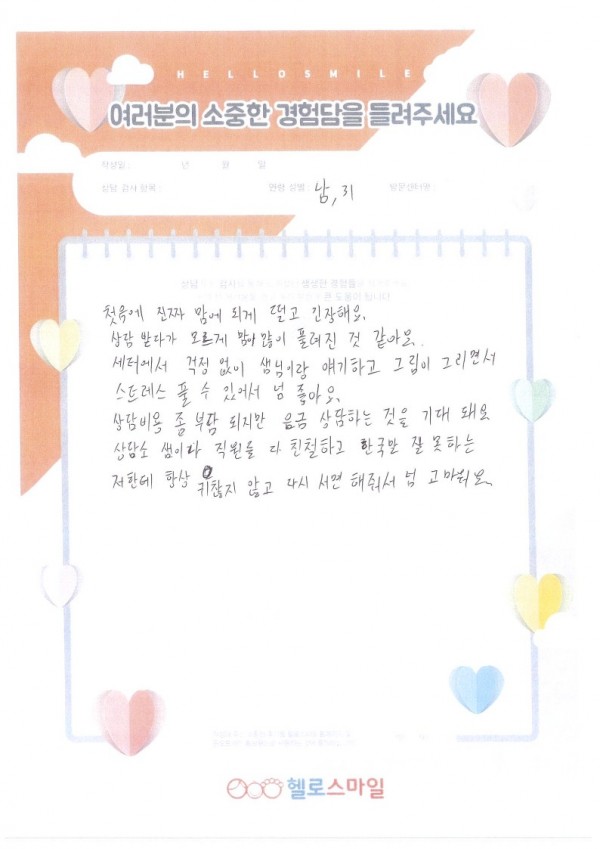 HELLOSMILE
여러분의 소중한 경험담을 들려주세요
작성일 : 년 월 일
상담 검사 항목 : 연령 성별 : 남, 31 방문센터명 :
첫음에 진짜 맘에 되게 떨고 긴장해요.
상담 받다가 모르게 맘이 많이 풀려진 것 같아요.
세터에서 걱정 없이 샘님이랑 얘기하고 그림이 그리면서
스트레스 풀 수 있어서 넘 좋아요.
상담비용 좀 부담 되지만 음금 상담하는 것을 기대 돼요
상담소 샘이랑 직원들 다 친철하고 한국만 잘 못하는
저한테 항상 귀찮지 않고 다시 서면 해줘서 넘 고마워요.
헬로스마일